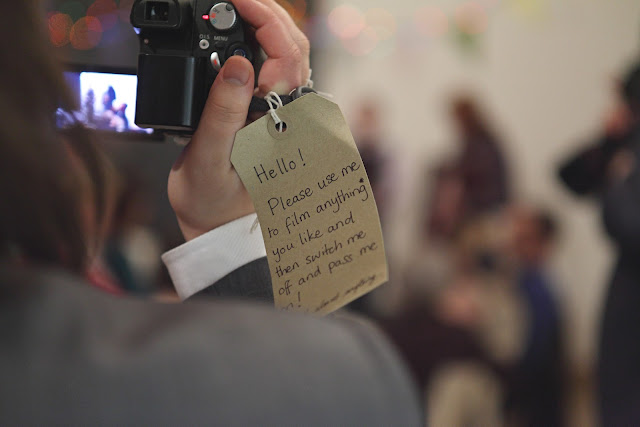 MENU
Hello!
Please use me
to film anything
you like and
then switch me
off and pass me
on!
almost anything